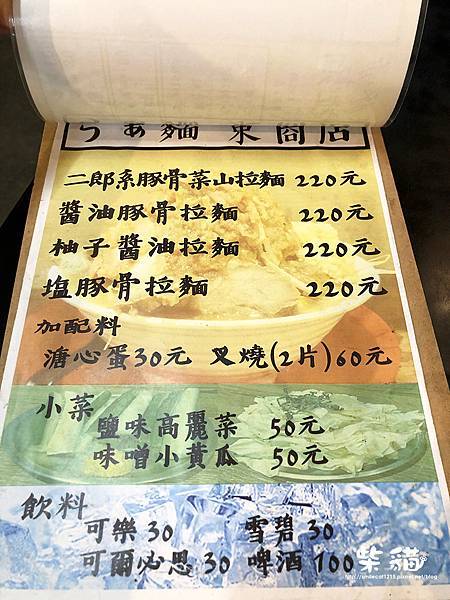 らぁ麺 東商店
二郎系豚骨菜山拉麵 220元
醬油豚骨拉麵 220元
柚子醬油拉麵 220元
塩豚骨拉麵 220元
加配料
溏心蛋30元 叉燒(2片)60元
小菜
鹽味高麗菜 50元
味噌小黃瓜 50元
飲料
可樂30 雪碧30
可爾必思30 啤酒100
柴貓
http://smilecat1215.pixnet.net/blog